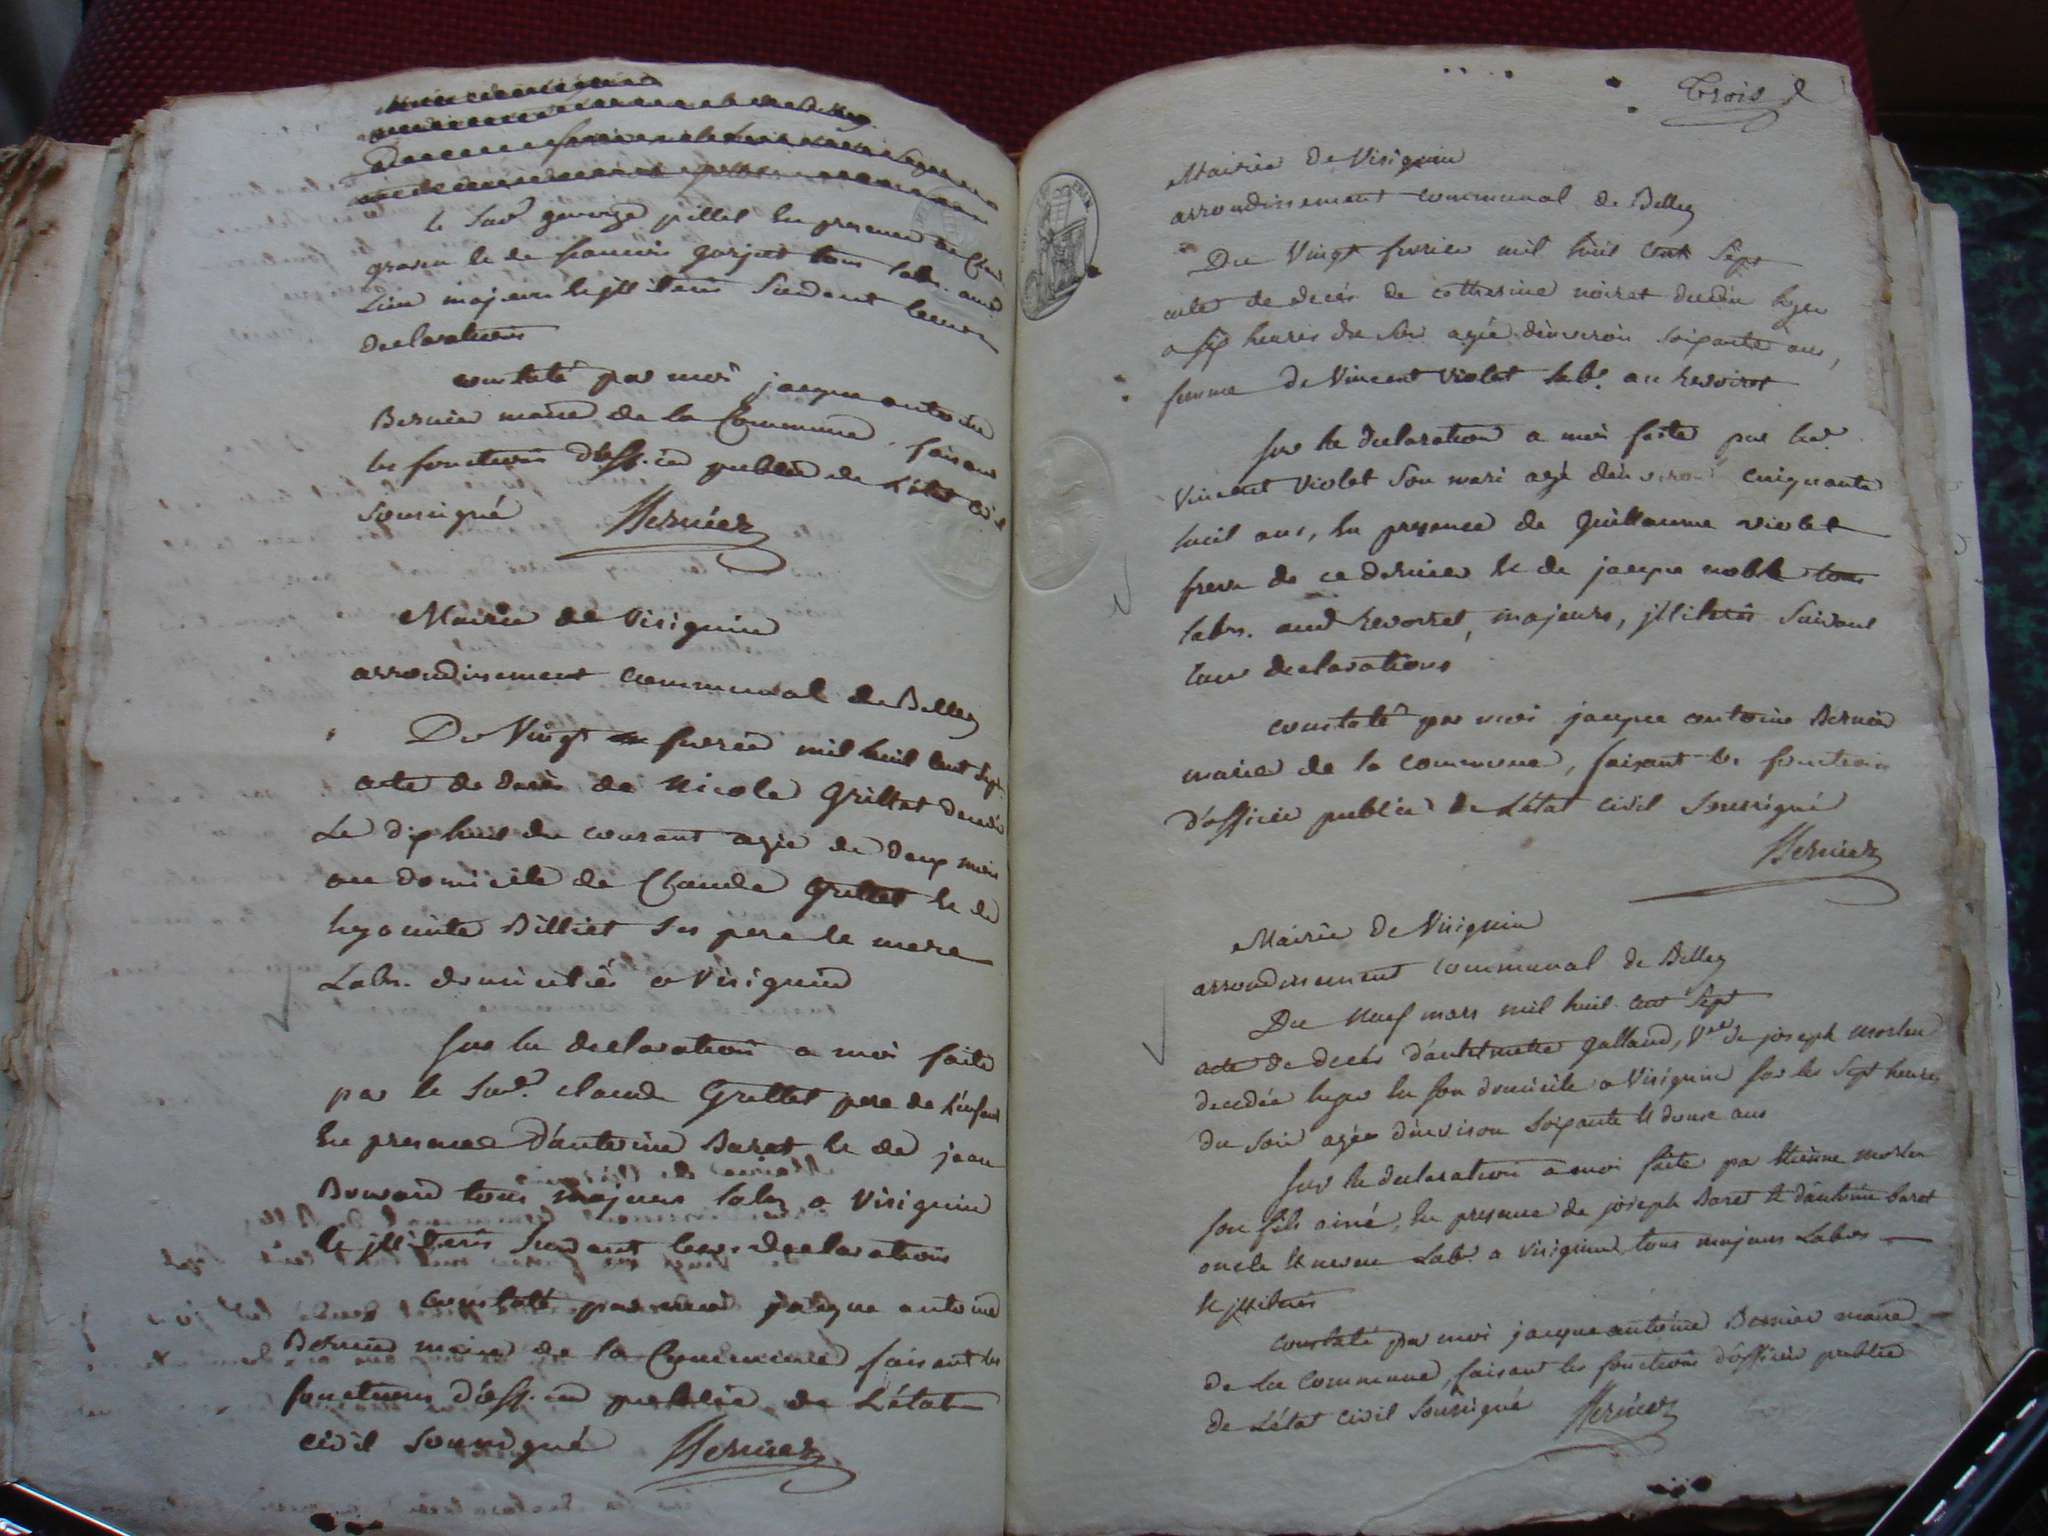 le Sus.d george pillet en presence de Claude
et de francois gorjut tous lab.rs aud
Lieu majeurs et illiterés Suivant leurs
declarations
constaté par moi jacque antoine
Bernier maire de la Commune, faisant
les fonctions d'off.ier public de L'état civil
Soussigné Bernier
Mairie de Virignin
arrondissement communal de Belley
Du Vingt fevrier mil huit Cent Sept
acte de decès de Nicole Grillet decedé
Le dix huit du courant agée de deux mois
au domicile de Claude Grillet et de
hyacinte Billiet Ses pere et mere
Lab.rs domiciliés a Virignin
Sur la declaration a moi faite
par le Sus.d Claude Grillet pere de L'enfant
En presence d'antoine Baret et de jean
tous majeurs lab.rs a Virignin
et illiterés Suivant leurs declarations
constaté par moi jacque antoine
Bernier maire de la Commune faisant les
fonctions d'off.ier public de L'état
civil Soussigné Bernier
Trois
Mairie de Virignin
arrondissement communal de Belley
Du Vingt fevrier mil huit cent Sept
acte de decès de catherine noiret decedée hyer
a six heures du Soir agée d'environ Soixante ans,
femme de Vincent Violet lab.r au revoiret
Sur la declaration a moi faite par led.
Vincent Violet Son mari agé d'environ cinquante
huit ans, En presence de Guillaume violet
frere de ce dernier et de jacque noble tous
labrs. aud revoiret, majeurs, illiterés Suivant
leur declarations
constaté par moi jacque antoine Bernier
maire de la commune, faisant les fonctions
d'officier public de L'état civil Soussigné
Bernier
Mairie de Virignin
arrondissement communal de Belley
Du neuf mars mil huit cent Sept
acte de decès galland, V.ve de joseph
decedée hyer En Son domicile a Virignin Sur les Sept heures
du Soir agée d'environ Soixante et douse ans
Sur la declaration a moi faite par Etienne
Son fils ainé, En presence de joseph Baret et d'antoine baret
oncle et neveu Lab.r a Virignin, tous majeurs Labrs
et illiterés
constaté par moi jacque antoine Bernier maire
de la commune, faisant les fonctions d'officier public
de L'état civil Soussigné Bernier